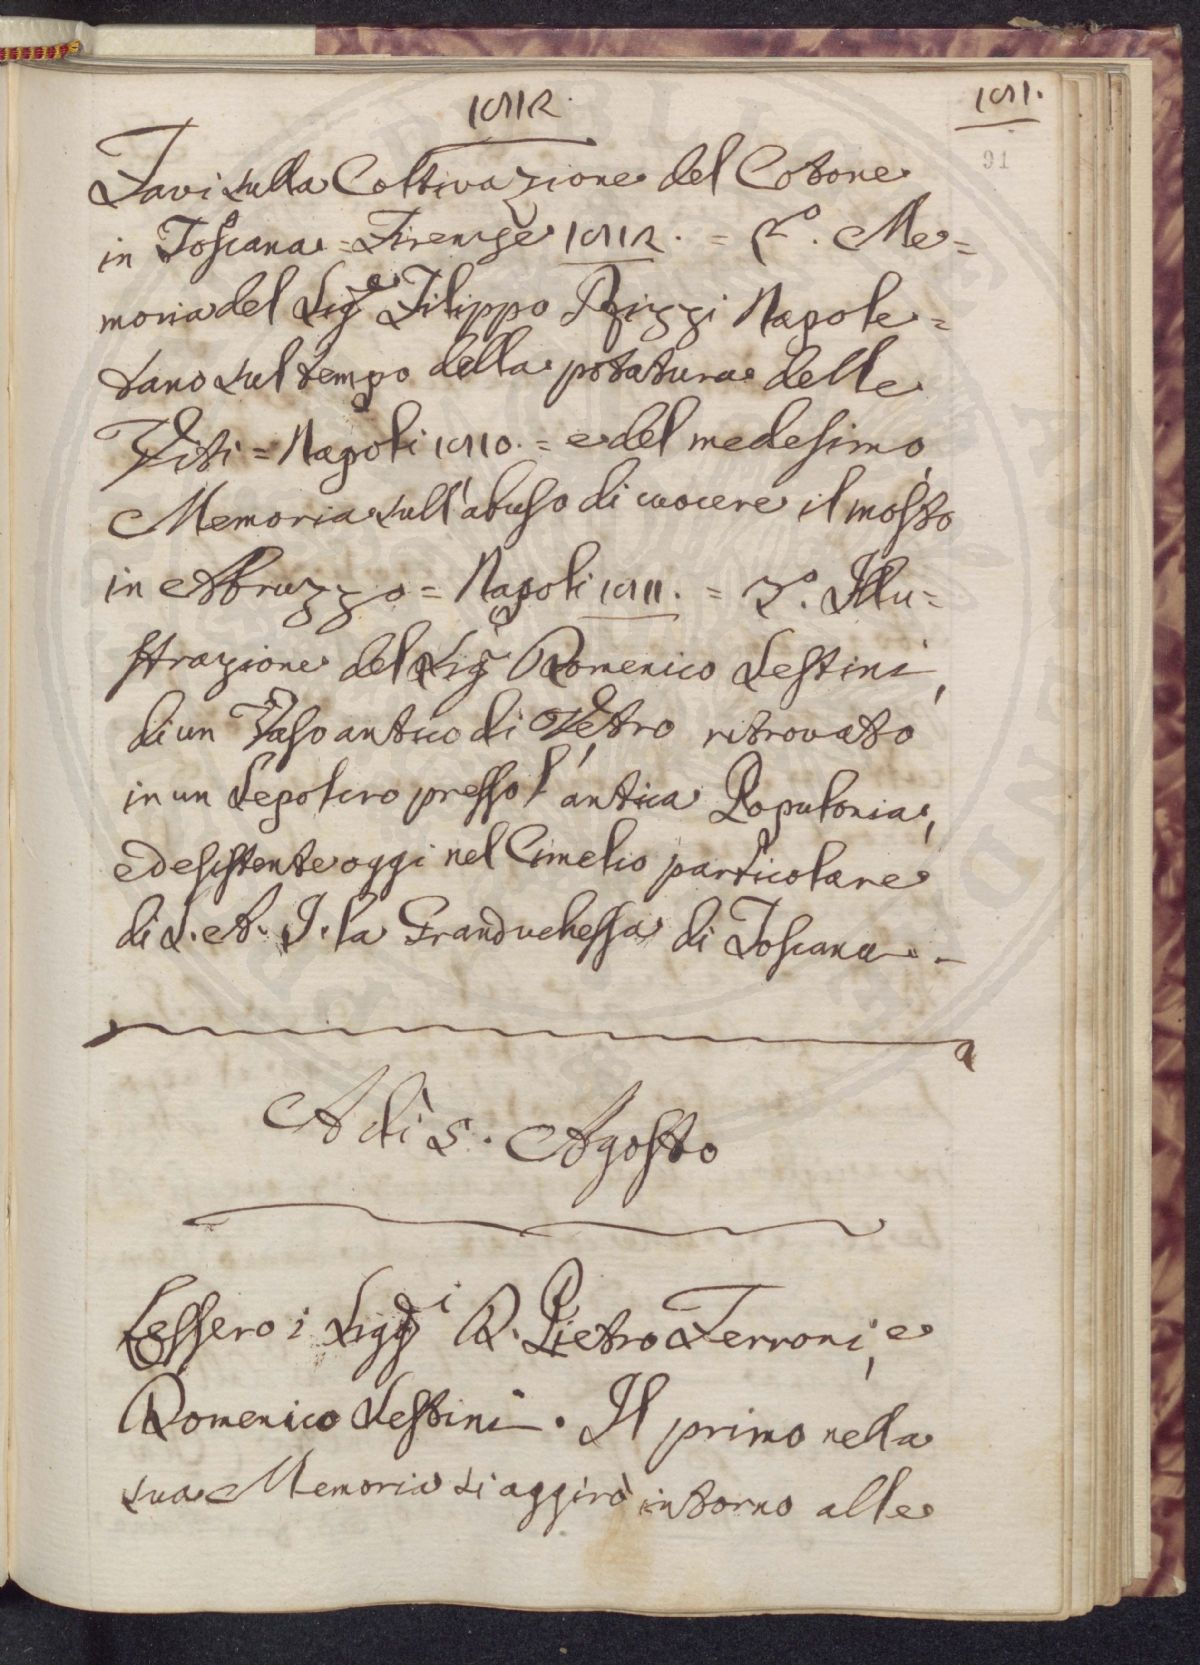 1812
181.
91
Favi sulla Coltivazione del Cotone
in Toscana = Firenze 1812. = 2°. Me=
moria del Sig.e Filippo Rizzi Napole=
tano sul tempo della potatura delle
Viti = Napoli 1810. = e del medesimo
Memoria sull'abuso di cuocere il mosto
in Abruzzo = Napoli 1811. = 3°. Illu=
strazione del Sig.r Domenico Sestini,
di un Vaso antico di Vetro ritrovato
in un Sepolcro presso l'antica Populonia,
ed esistente oggi nel Cimelio particolare
di S. A. I. la Granduchessa di Toscana. –
A dì 5. Agosto
Lessero i Sigg.ri D. Pietro Ferroni, e
Domenico Sestini. Il primo nella
sua Memoria si aggirò intorno alle